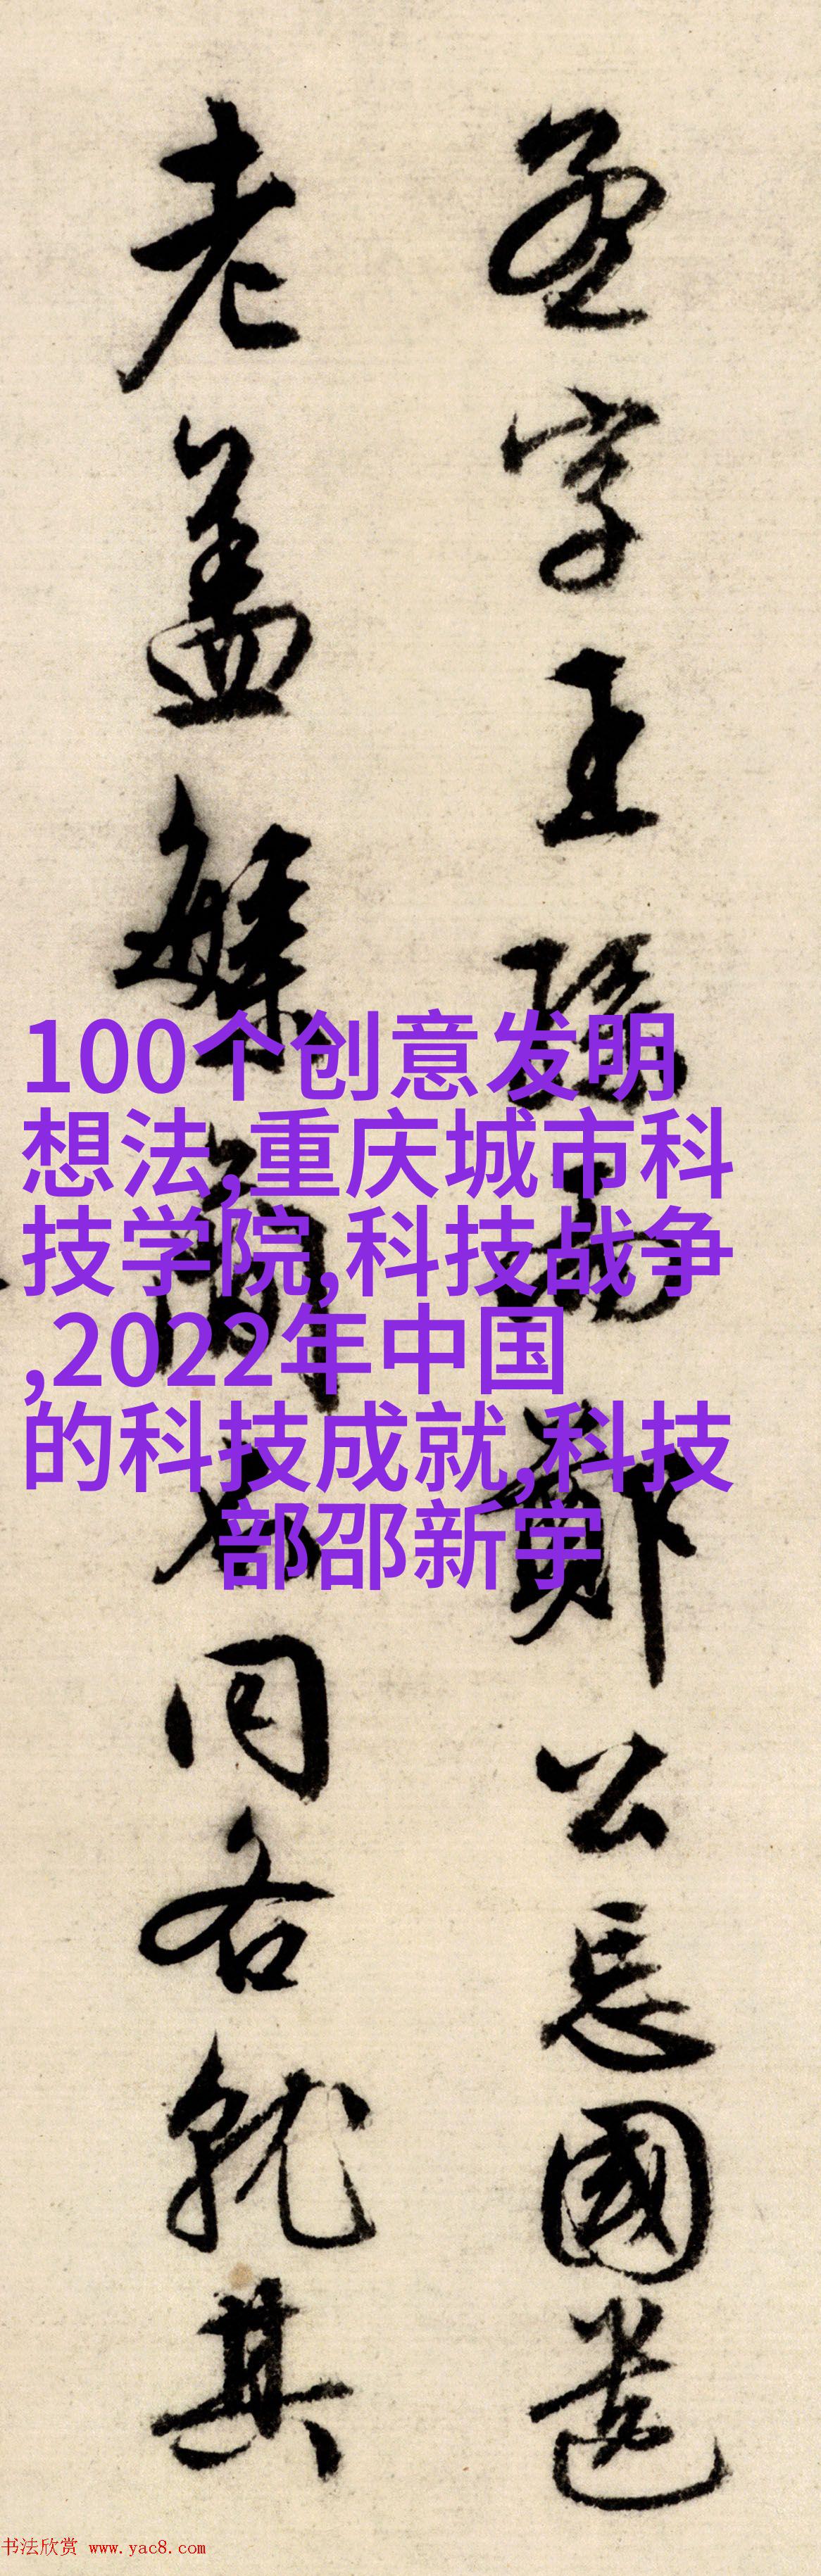 至字王臨
鄭公忘國遺
老盖
同各就其
100个创意发明
想法,重庆城市科
技学院,科技战争
,2022年中国
的科技成就,科技
部邵新宇
书法欣赏 www.yac8.com